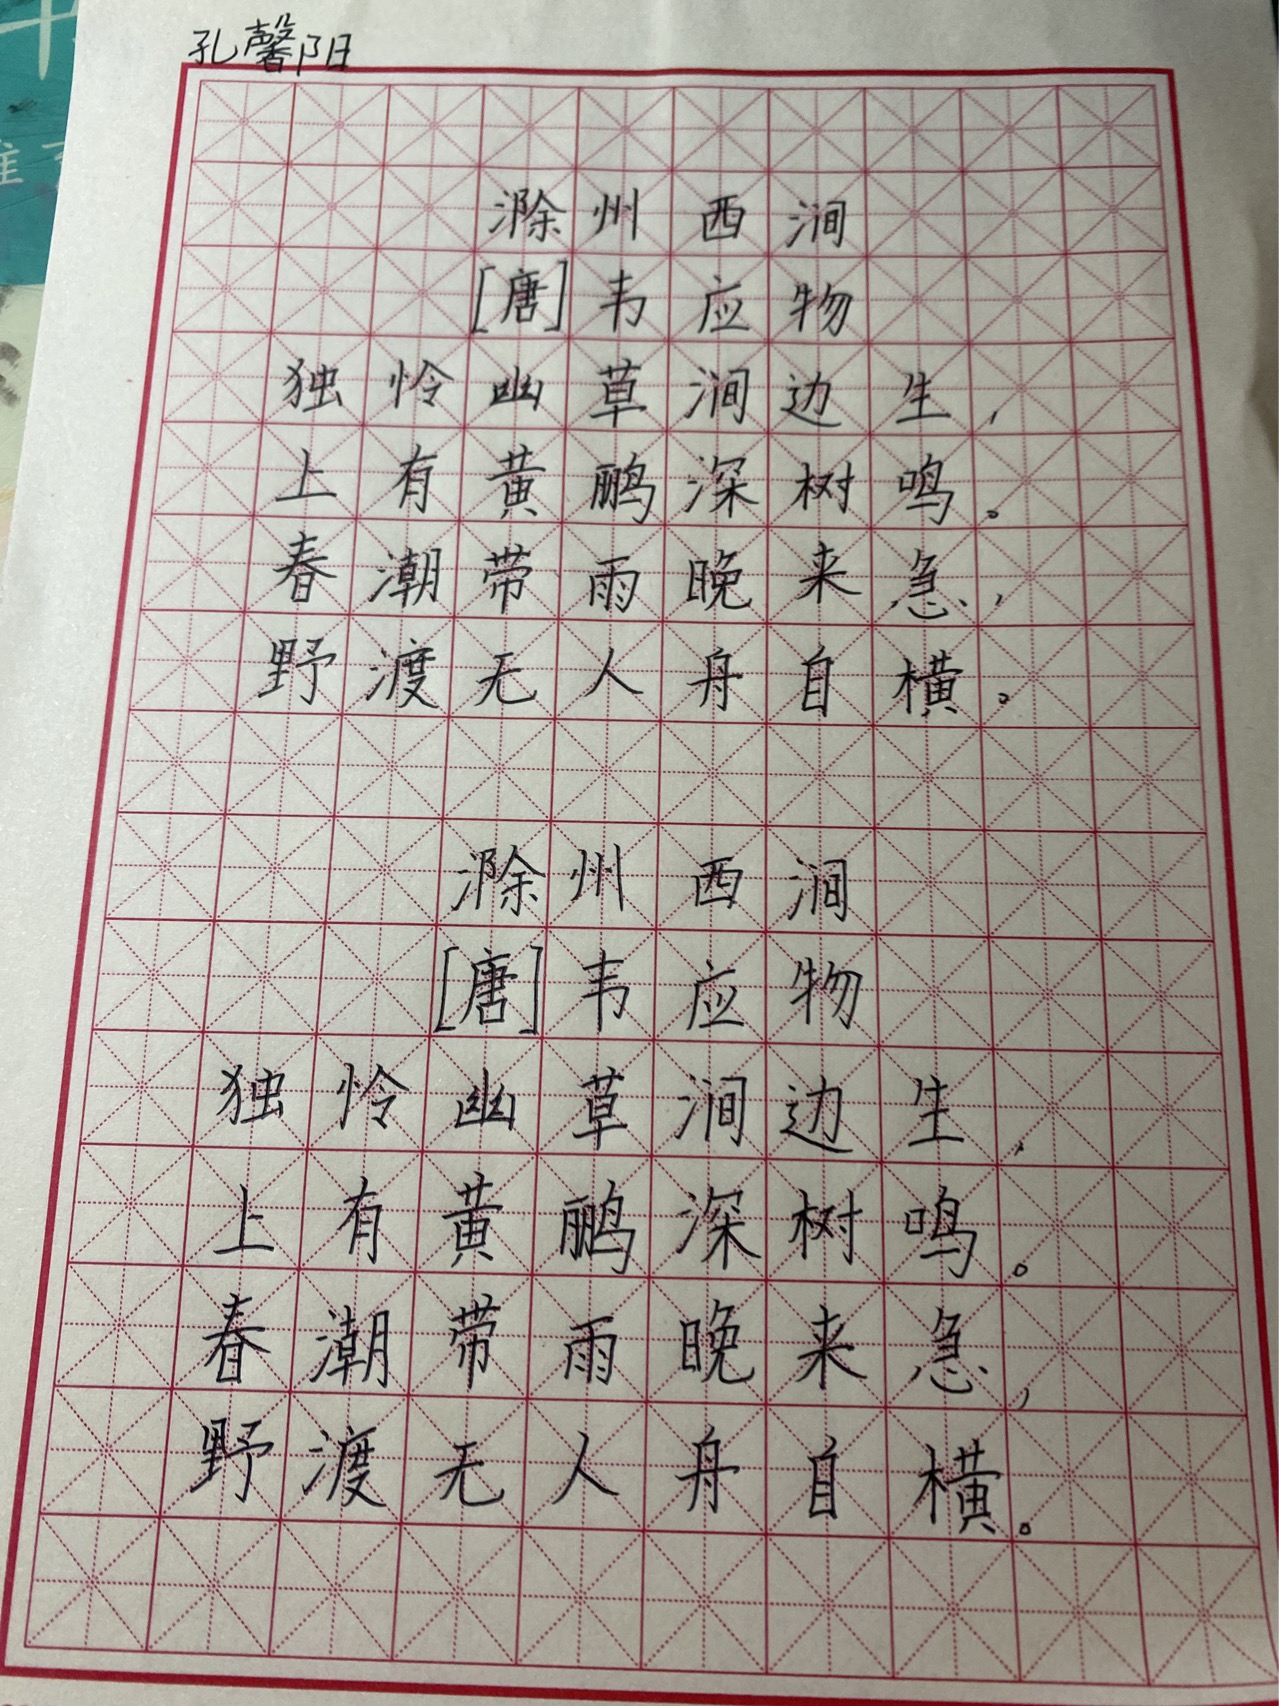 孔馨阳
滁州西涧
[唐]韦应物
独怜幽草涧边生，
上有黄鹂深树鸣。
春潮带雨晚来急，
野渡无人舟自横。
滁州西涧
[唐]韦应物
独怜幽草涧边生，
上有黄鹂深树鸣。
春潮带雨晚来急，
野渡无人舟自横。